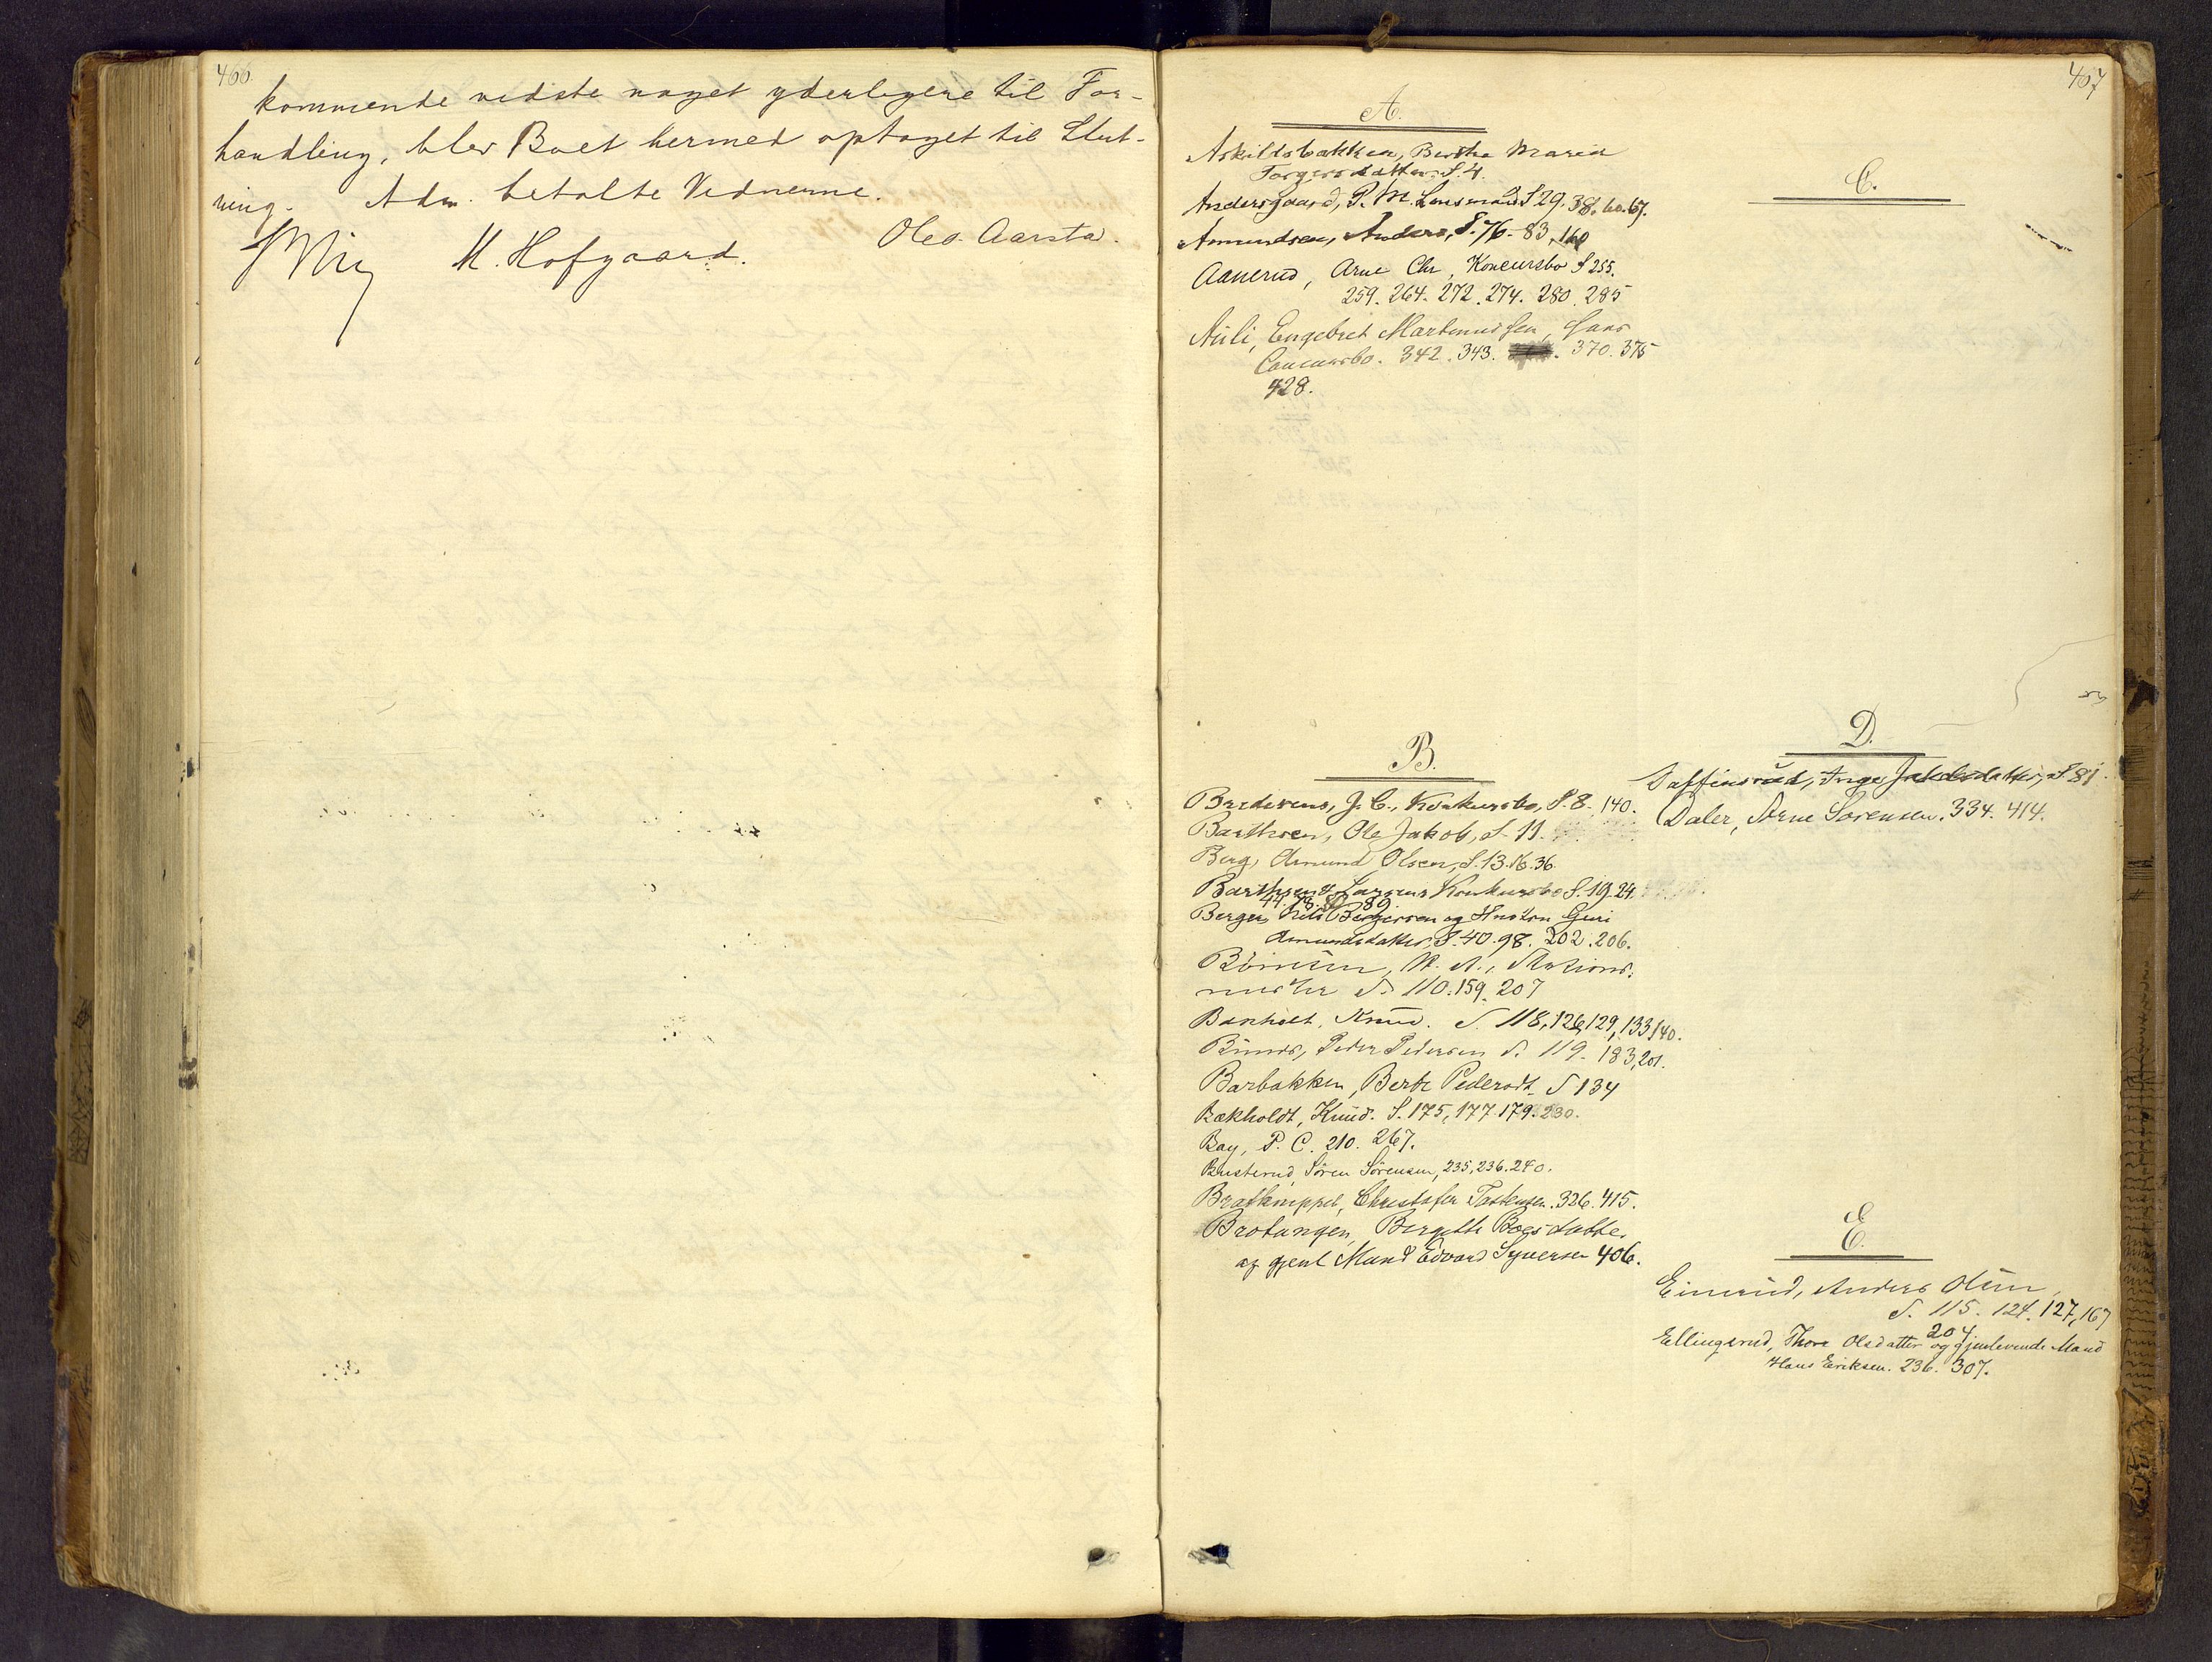 466.
kommende vidste noget yderligere til For-
handling, blev Boet hermed optaget til Slut-
ning. Adm. betalte Vidnerne.
M. Hofgaard. Oles. Aarsta.
467
A.
Askildsbakken, Berthe Maria
Torgersdatter S. 4.
Andersgaard, P. M. Lensmand S 29. 38. 60. 67.
Amundsen, Anders, S. 76. 83, 160
Aanerud, Arne Chr, Koncursbo S 255.
259. 264. 272. 274. 280. 285
Auli, Engebret Martinussen, hans
Concursbo. 342. 343. 370. 375
428.
B.
J. C., Konkursbo, S. 8. 140.
Barthsen, Ole Jakob, S. 11.
Berg, Amund Olsen, S. 13. 16. 36.
Barthsen & Larsens Konkursbo S. 19. 24.
44. 78. 80 89.
Berger, Nils Bergersen og Hustru Guri
Amundsdatter, S. 40. 98. 202. 206.
S. 110. 159. 207
Bakholdt, Knud. S. 118, 126, 129, 133, 140.
Peder Pedersen S. 119. 183, 201.
Barbakken, Berte Pedersdt. S 134
Bækholdt, Knud. S. 175, 177. 179. 230.
Bay, P. C. 210. 267.
Busterud, Sören Sörensen, 235, 236. 240.
Bratknippel, Christofer Tostensen. 326. 415.
Brotangen, Bergitte Boesdatter
og gjenl Mand Edvard Syversen 406.
C.
D.
Daffinsrud, Inge Jakobsdatter, S. 81.
Daler, Arne Sorensen. 334. 414.
E.
Einerud, Anders Olsen,
S. 115. 124. 127, 167
204
Ellingsrud, Thore Olsdatter og gjenlevende Mand
Hans Eriksen. 236. 307.